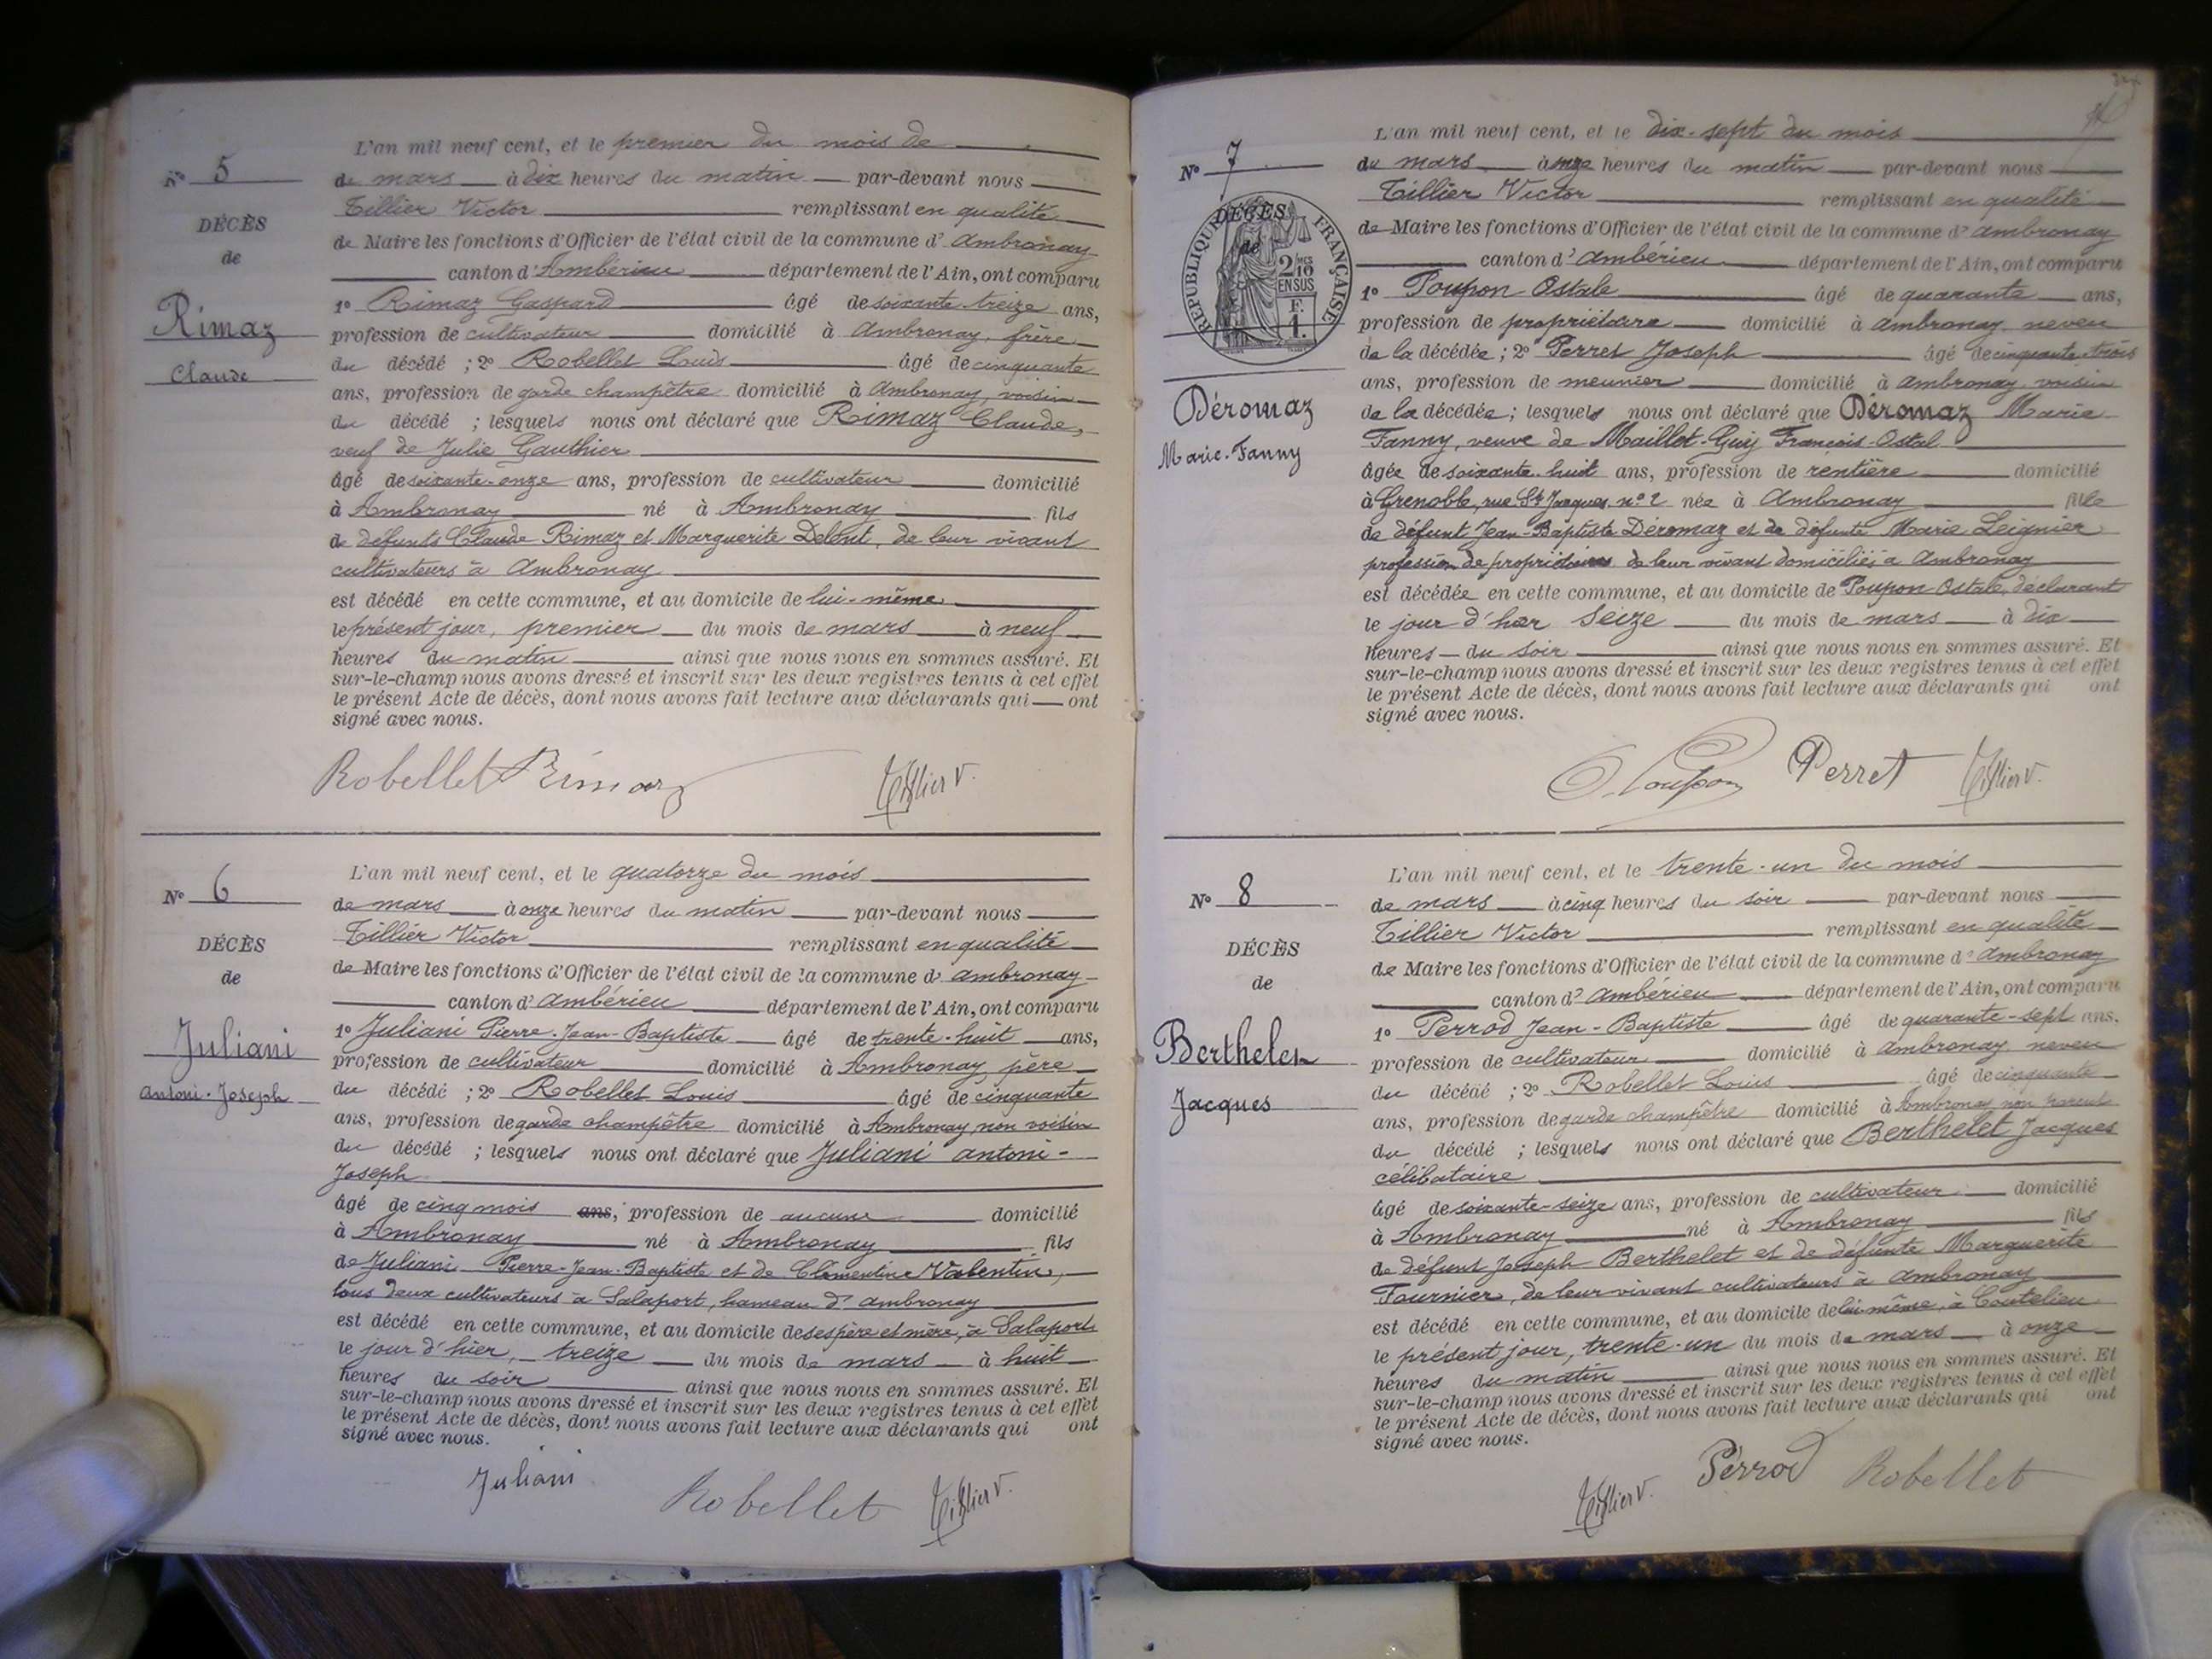 L'an mil neuf cent, et le premier du mois de
Nº 5
de mars à dix heures du matin par-devant nous
Tillier Victor remplissant en qualité
DÉCÈS
de Maire les fonctions d'Officier de l'état civil de la commune d' Ambronay
de
canton d' Ambérieu département de l'Ain, ont comparu
1º Rimaz Gaspard âgé de soixante-treize ans,
Rimaz
profession de cultivateur domicilié à Ambronay, frère
du décédé ; 2º Robellet Louis âgé de cinquante
Claude
ans, profession de garde champêtre domicilié à Ambronay, voisin
du décédé ; lesquels nous ont déclaré que Rimaz Claude,
veuf de Julie Gauthier
âgé de soixante-onze ans, profession de cultivateur domicilié
à Ambronay né à Ambronay fils
de défunts Claude Rimaz et Marguerite, de leur vivant
cultivateurs à Ambronay
est décédé en cette commune, et au domicile de lui-même
le présent jour, premier du mois de mars à neuf
heures du matin ainsi que nous nous en sommes assuré. Et
sur-le-champ nous avons dressé et inscrit sur les deux registres tenus à cet effet
le présent Acte de décès, dont nous avons fait lecture aux déclarants qui ont
signé avec nous.
Robellet Rimaz Tillier V.
L'an mil neuf cent, et le quatorze du mois
Nº 6
de mars à onze heures du matin par-devant nous
Tillier Victor remplissant en qualité
DÉCÈS
de Maire les fonctions d'Officier de l'état civil de la commune d' Ambronay
de
canton d' Ambérieu département de l'Ain, ont comparu
1º Juliani Pierre-Jean-Baptiste âgé de trente-huit ans,
Juliani
profession de cultivateur domicilié à Ambronay, père
du décédé ; 2º Robellet Louis âgé de cinquante
Antoni-Joseph
ans, profession de garde champêtre domicilié à Ambronay, non voisin
du décédé ; lesquels nous ont déclaré que Juliani Antoni-
Joseph
âgé de cinq mois ans, profession de aucune domicilié
à Ambronay né à Ambronay fils
de Juliani Pierre-Jean-Baptiste et de Clémentine Valentin,
tous deux cultivateurs à Salaport, hameau d' Ambronay
est décédé en cette commune, et au domicile de ses père et mère, à Salaport
le jour d'hier, treize du mois de mars à huit
heures du soir ainsi que nous nous en sommes assuré. Et
sur-le-champ nous avons dressé et inscrit sur les deux registres tenus à cet effet
le présent Acte de décès, dont nous avons fait lecture aux déclarants qui ont
signé avec nous.
Juliani Robellet Tillier V.
L'an mil neuf cent, et le dix-sept du mois
Nº 7
de mars à onze heures du matin par-devant nous
Tillier Victor remplissant en qualité
DÉCÈS
de Maire les fonctions d'Officier de l'état civil de la commune d' Ambronay
de
RÉPUBLIQUE FRANÇAISE
2/10 EN SUS
F. 1.
canton d' Ambérieu département de l'Ain, ont comparu
1º Poupon Ostale âgé de quarante ans,
profession de propriétaire domicilié à Ambronay neveu
de la décédée ; 2º Perret Joseph âgé de cinquante-trois
ans, profession de meunier domicilié à Ambronay voisin
Déromaz
de la décédée ; lesquels nous ont déclaré que Déromaz Marie
Marie-Fanny
Fanny, veuve de Maillot-Guy François-Ostal
âgée de soixante-huit ans, profession de rentière domicilié
à Grenoble, rue St Jacques, nº 2 née à Ambronay fille
de défunt Jean-Baptiste Déromaz et de défunte Marie Leignier
profession de propriétaires de leur vivant domiciliés à Ambronay
est décédée en cette commune, et au domicile de Poupon Ostale, déclarant
le jour d'hier seize du mois de mars à dix
heures du soir ainsi que nous nous en sommes assuré. Et
sur-le-champ nous avons dressé et inscrit sur les deux registres tenus à cet effet
le présent Acte de décès, dont nous avons fait lecture aux déclarants qui ont
signé avec nous.
O. Poupon Perret Tillier V.
L'an mil neuf cent, et le trente-un du mois
Nº 8
de mars à cinq heures du soir par-devant nous
Tillier Victor remplissant en qualité
DÉCÈS
de Maire les fonctions d'Officier de l'état civil de la commune d' Ambronay
de
canton d' Ambérieu département de l'Ain, ont comparu
1º Perrod Jean-Baptiste âgé de quarante-sept ans,
Berthelet
profession de cultivateur domicilié à Ambronay neveu
du décédé ; 2º Robellet Louis âgé de cinquante
Jacques
ans, profession de garde champêtre domicilié à Ambronay non parent
du décédé ; lesquels nous ont déclaré que Berthelet Jacques
célibataire
âgé de soixante-seize ans, profession de cultivateur domicilié
à Ambronay né à Ambronay fils
de défunt Joseph Berthelet et de défunte Marguerite
Fournier, de leur vivant cultivateurs à Ambronay
est décédé en cette commune, et au domicile de lui même, à Coutelieu
le présent jour, trente-un du mois de mars à onze
heures du matin ainsi que nous nous en sommes assuré. Et
sur-le-champ nous avons dressé et inscrit sur les deux registres tenus à cet effet
le présent Acte de décès, dont nous avons fait lecture aux déclarants qui ont
signé avec nous.
Tillier V. Perrod Robellet